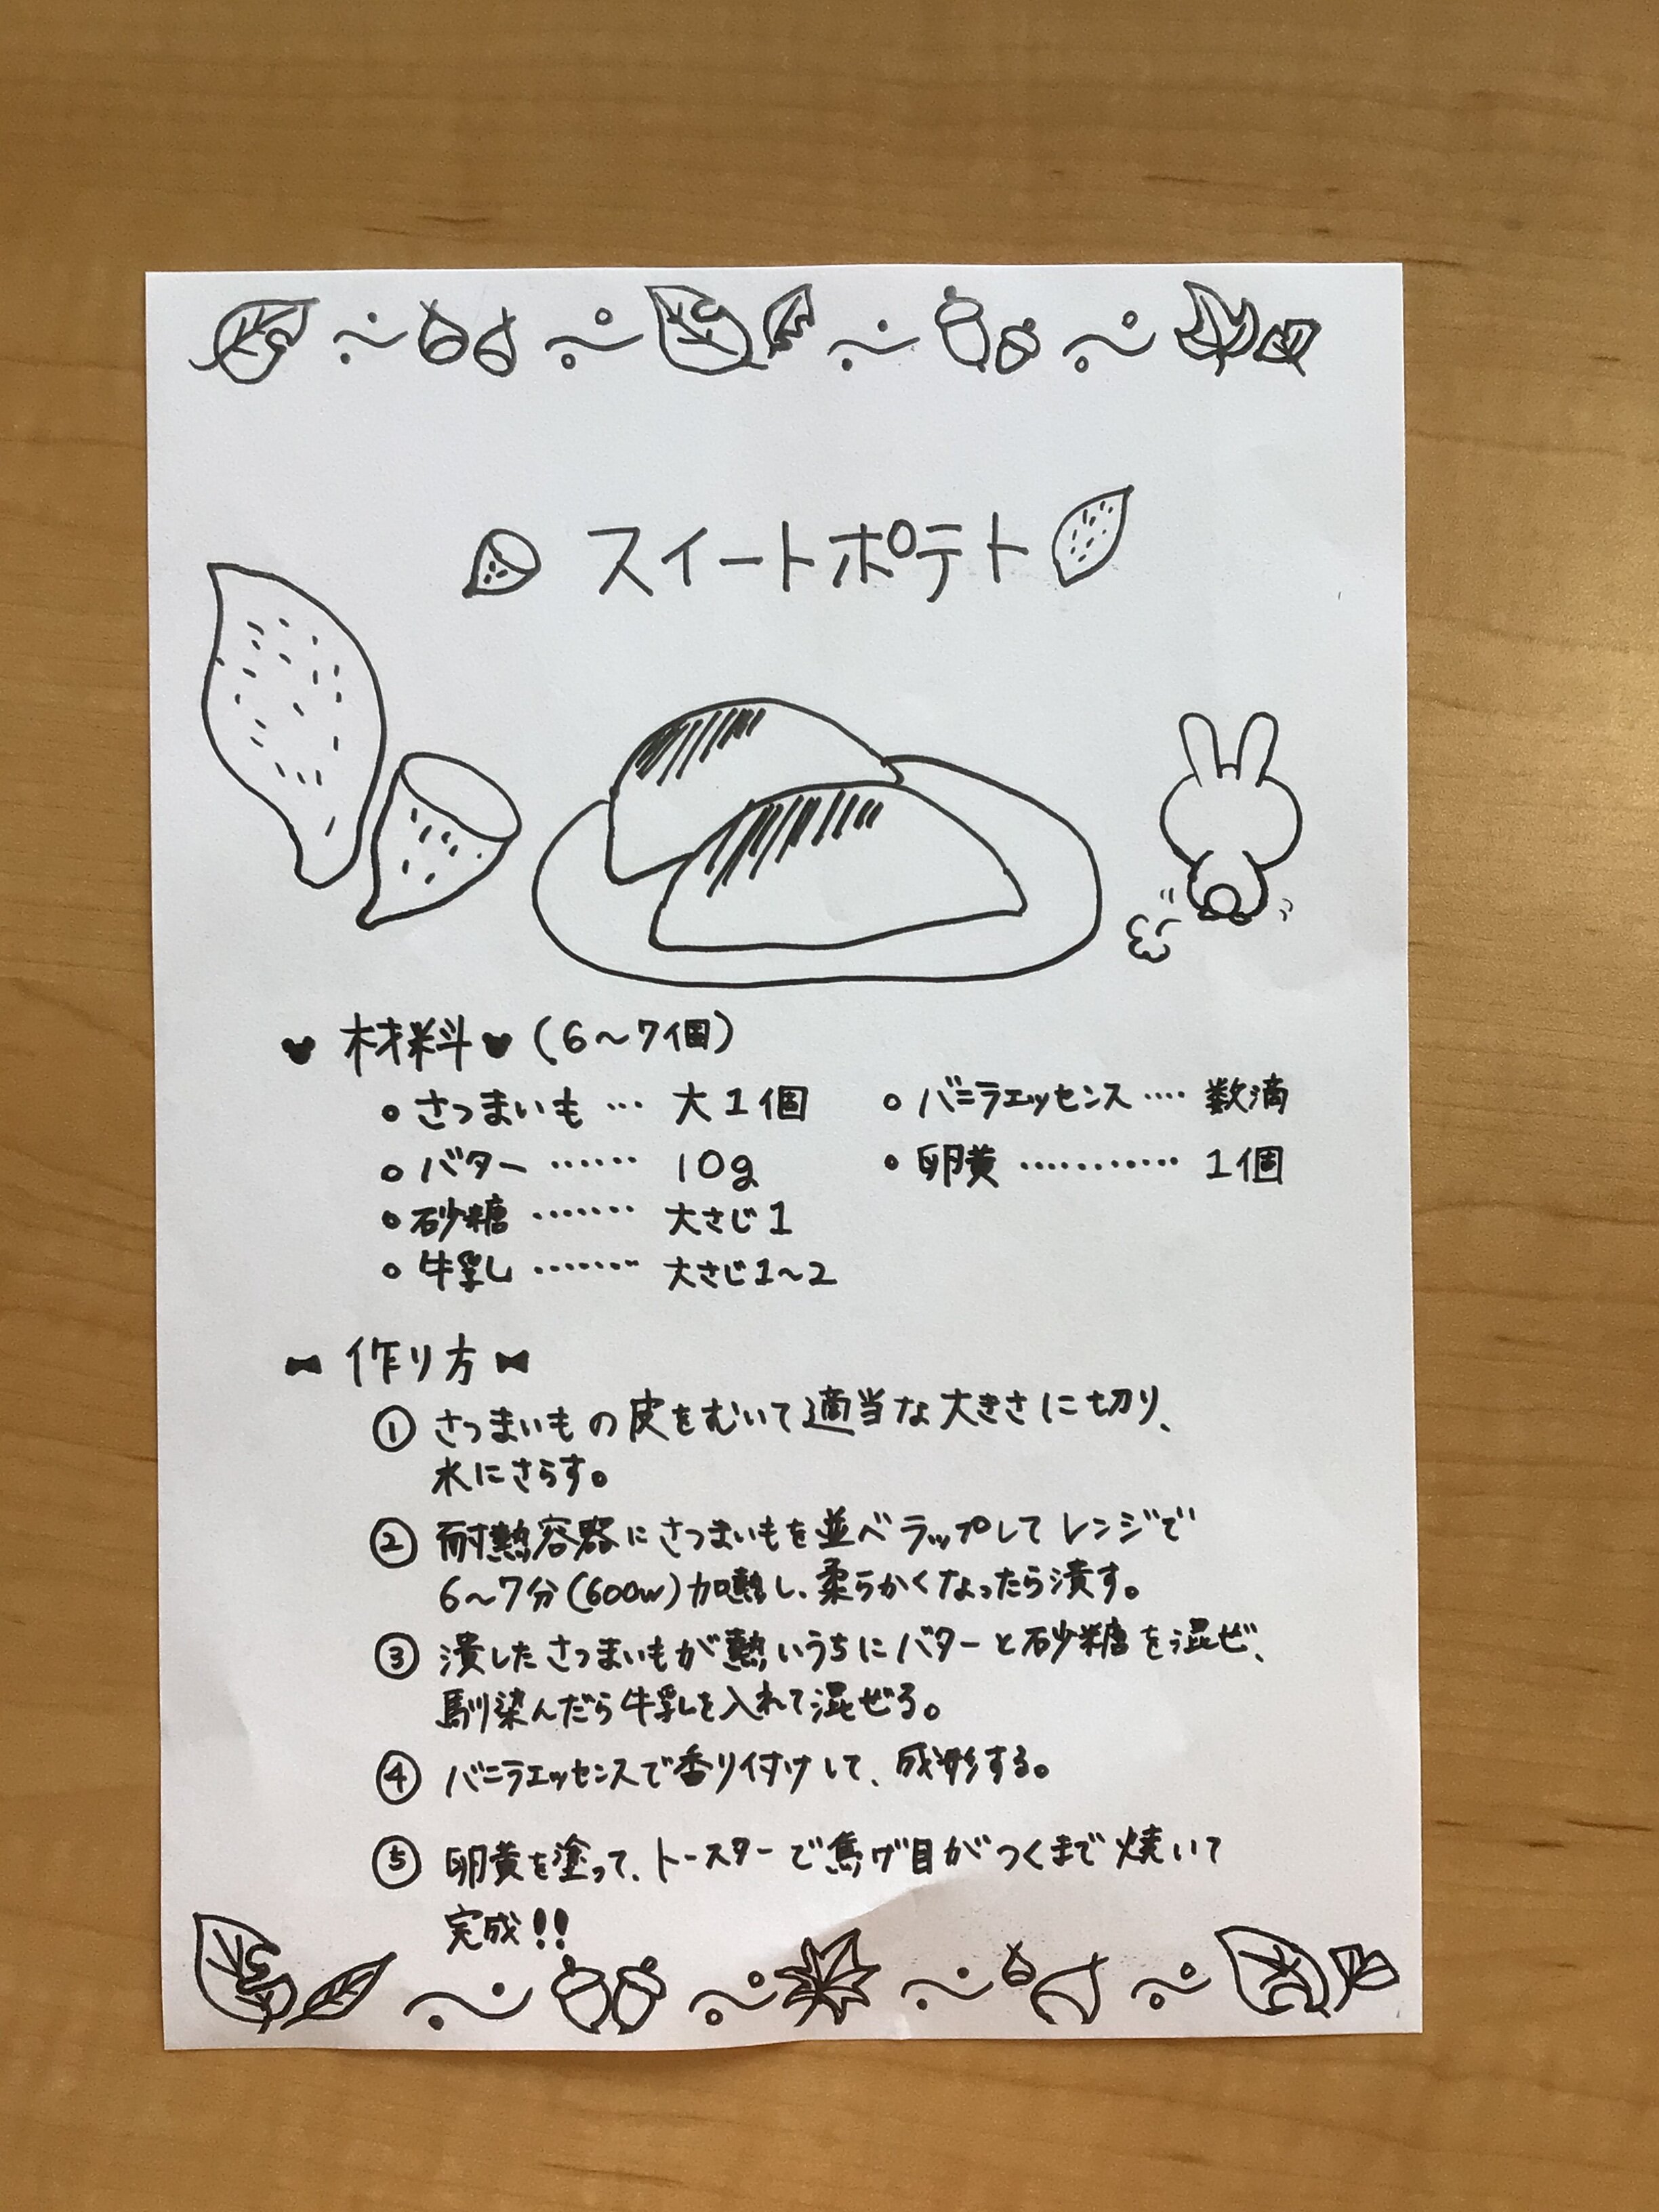 スイートポテト
材料 (6〜7個)
・さつまいも … 大1個
・バター …… 10g
・砂糖 ……. 大さじ1
・牛乳 ……. 大さじ1〜2
・バニラエッセンス …. 数滴
・卵黄 ………… 1個
作り方
① さつまいもの皮をむいて適当な大きさに切り、
水にさらす。
② 耐熱容器にさつまいもを並べラップしてレンジで
6〜7分(600w)加熱し、柔らかくなったら潰す。
③ 潰したさつまいもが熱いうちにバターと砂糖を混ぜ、
馴染んだら牛乳を入れて混ぜる。
④ バニラエッセンスで香り付けして、成形する。
⑤ 卵黄を塗って、トースターで焦げ目がつくまで焼いて
完成!!